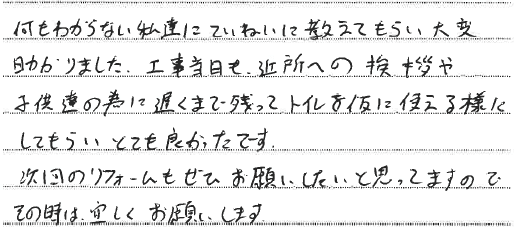 何もわからない私達にていねいに教えてもらい大変
助かりました。工事当日も、近所への挨拶や
子供達の為に遅くまで残ってトイレを仮に使える様に
してもらいとても良かったです。
次回のリフォームもぜひお願いしたいと思ってますので
その時は、宜しくお願いします